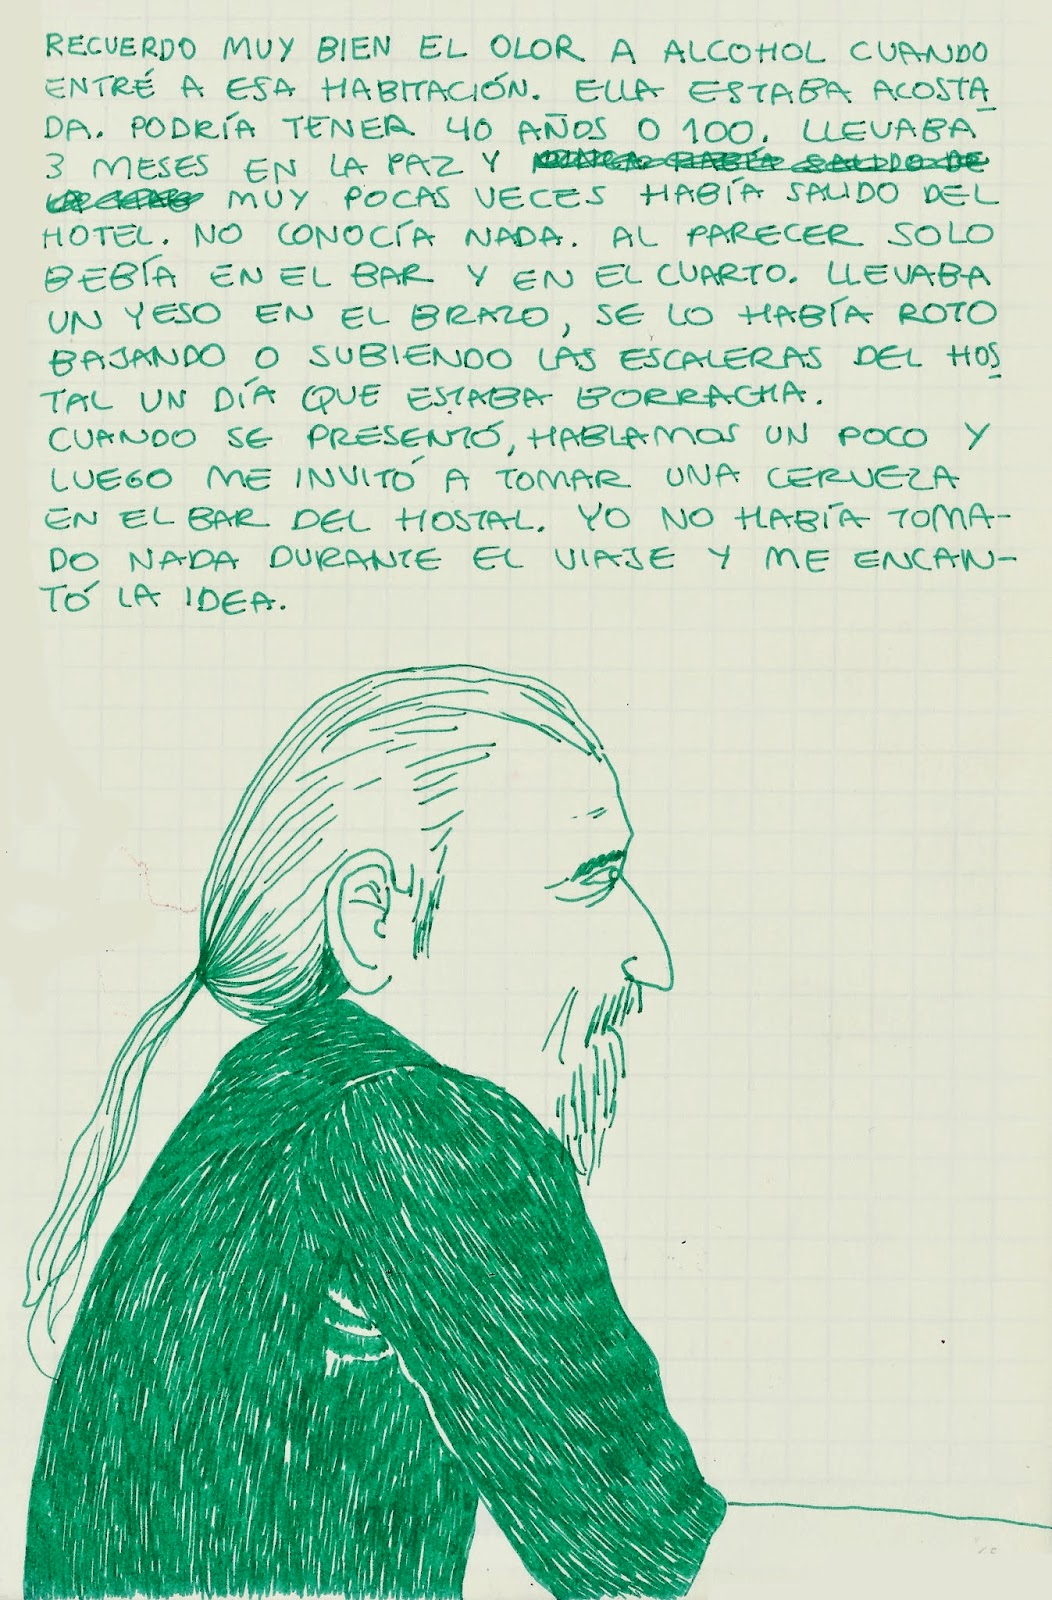 RECUERDO MUY BIEN EL OLOR A ALCOHOL CUANDO
ENTRÉ A ESA HABITACIÓN. ELLA ESTABA ACOSTA
DA. PODRÍA TENER 40 AÑOS O 100. LLEVABA
3 MESES EN LA PAZ Y NUNCA HABÍA SALIDO DE
MUY POCAS VECES HABÍA SALIDO DEL
HOTEL. NO CONOCÍA NADA. AL PARECER SOLO
BEBÍA EN EL BAR Y EN EL CUARTO. LLEVABA
UN YESO EN EL BRAZO, SE LO HABÍA ROTO
BAJANDO O SUBIENDO LAS ESCALERAS DEL HOS
TAL UN DÍA QUE ESTABA BORRACHA.
CUANDO SE PRESENTÓ, HABLAMOS UN POCO Y
LUEGO ME INVITÓ A TOMAR UNA CERVEZA
EN EL BAR DEL HOSTAL. YO NO HABÍA TOMA-
DO NADA DURANTE EL VIAJE Y ME ENCAN-
TÓ LA IDEA.